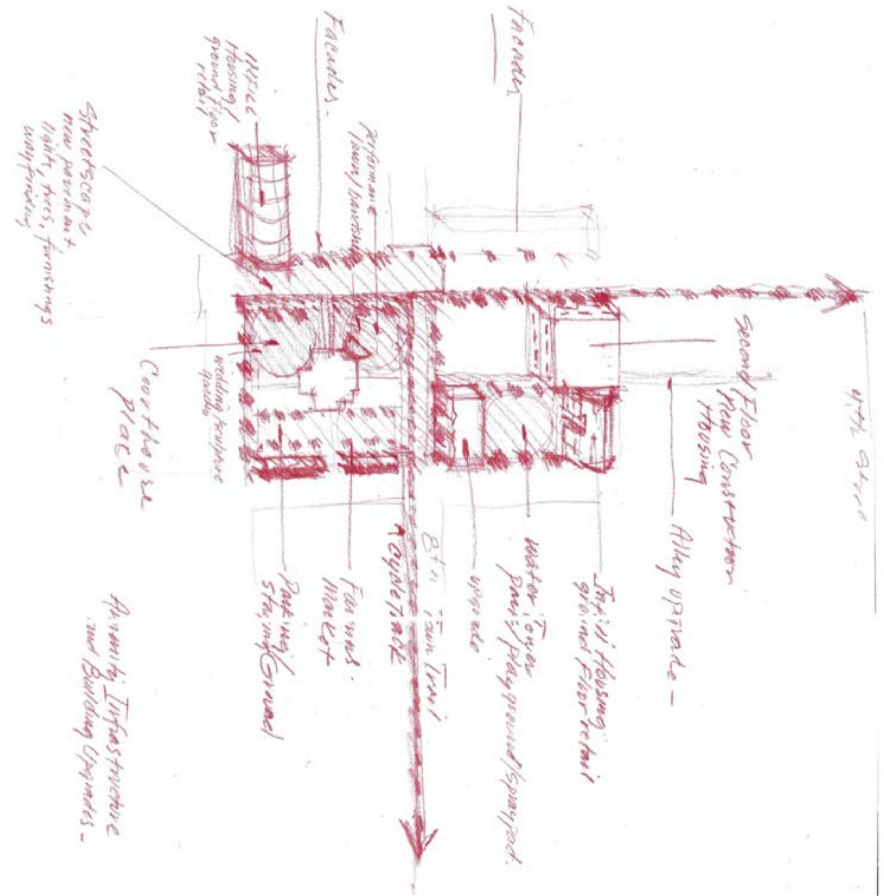 Facades
Facades
INFILL
Housing/
ground Floor
retail
performance
lawn/bandshell
Streetscape
new pavement
lights, trees, furnishings
wayfinding
Courthouse
Place
wedding/sculpture
garden
Second Floor
New Construction
Housing
Alley upgrade
Infill Housing
ground Floor retail
water Tower
park/playground/spraypad.
upgrade
8th
Trail
cycletrack
Farmers
Market
Parking/
staging Ground
Amenity Infrastructure
and Building Upgrades